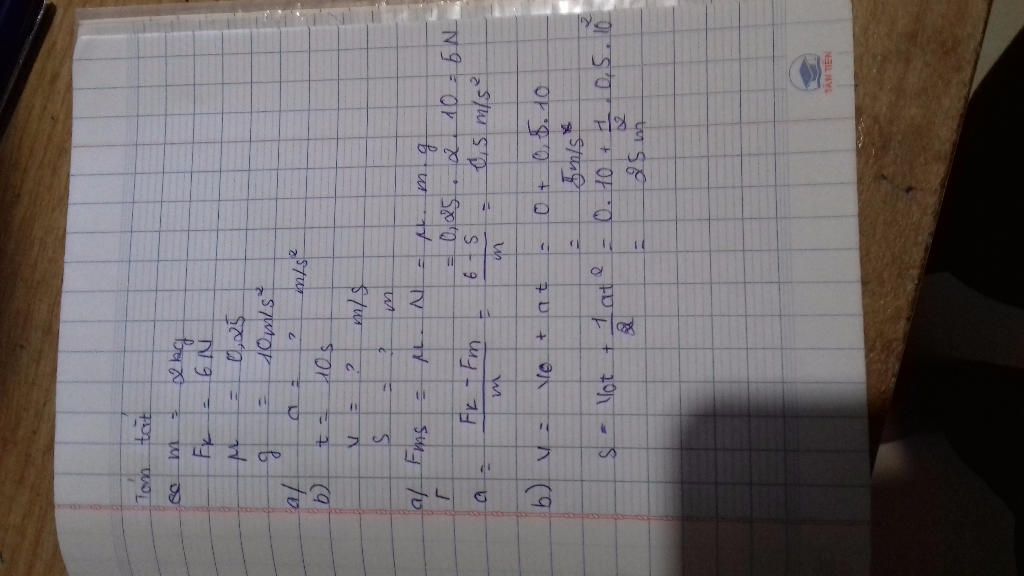 Tóm tắt
m = 2 kg
Fk = 6 N
μ = 0,25
g = 10 m/s²
a/ a = ? m/s²
b) t = 10s
v = ? m/s
s = ? m
a/ Fms = μ. N = μ. m. g
= 0,25. 2. 10 = 5 N
a = (Fk - Fm)/m = (6 - 5)/m = 0,5 m/s²
b) v = v0 + at = 0 + 0,5. 10
= 5m/s
s = v0t + 1/2 at² = 0. 10 + 1/2. 0,5. 10²
= 25 m
TAN TIEN